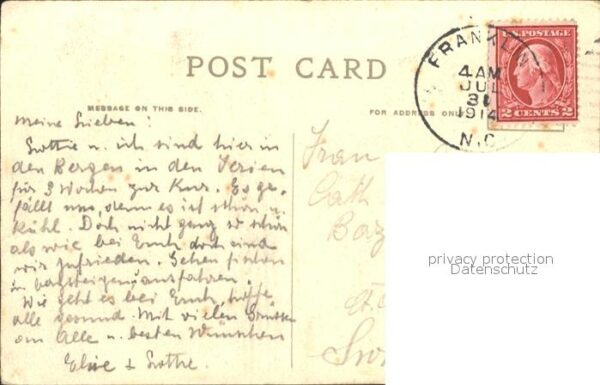 POST CARD
MESSAGE ON THIS SIDE.
FOR ADDRESS ONL
FRANKLIN
4 AM
JUL
31
1914
N.C.
U.S. POSTAGE
2 CENTS 2
Meine Lieben!
Lottie u. ich sind hier in
den Bergen in den Ferien
für 3 Wochen zur Kur. Es ge-
fällt uns, denn es ist schön u.
kühl. Doch nicht ganz so schön
als wie bei Euch doch sind
wir zufrieden. Gehen fischen
u. bergsteigen, ausfahren.
Wie geht es bei Euch, hoffe
alle gesund. Mit vielen Grüssen
an Alle u. besten Wünschen
Elise + Lottie.
Frau
Cath
privacy protection
Datenschutz